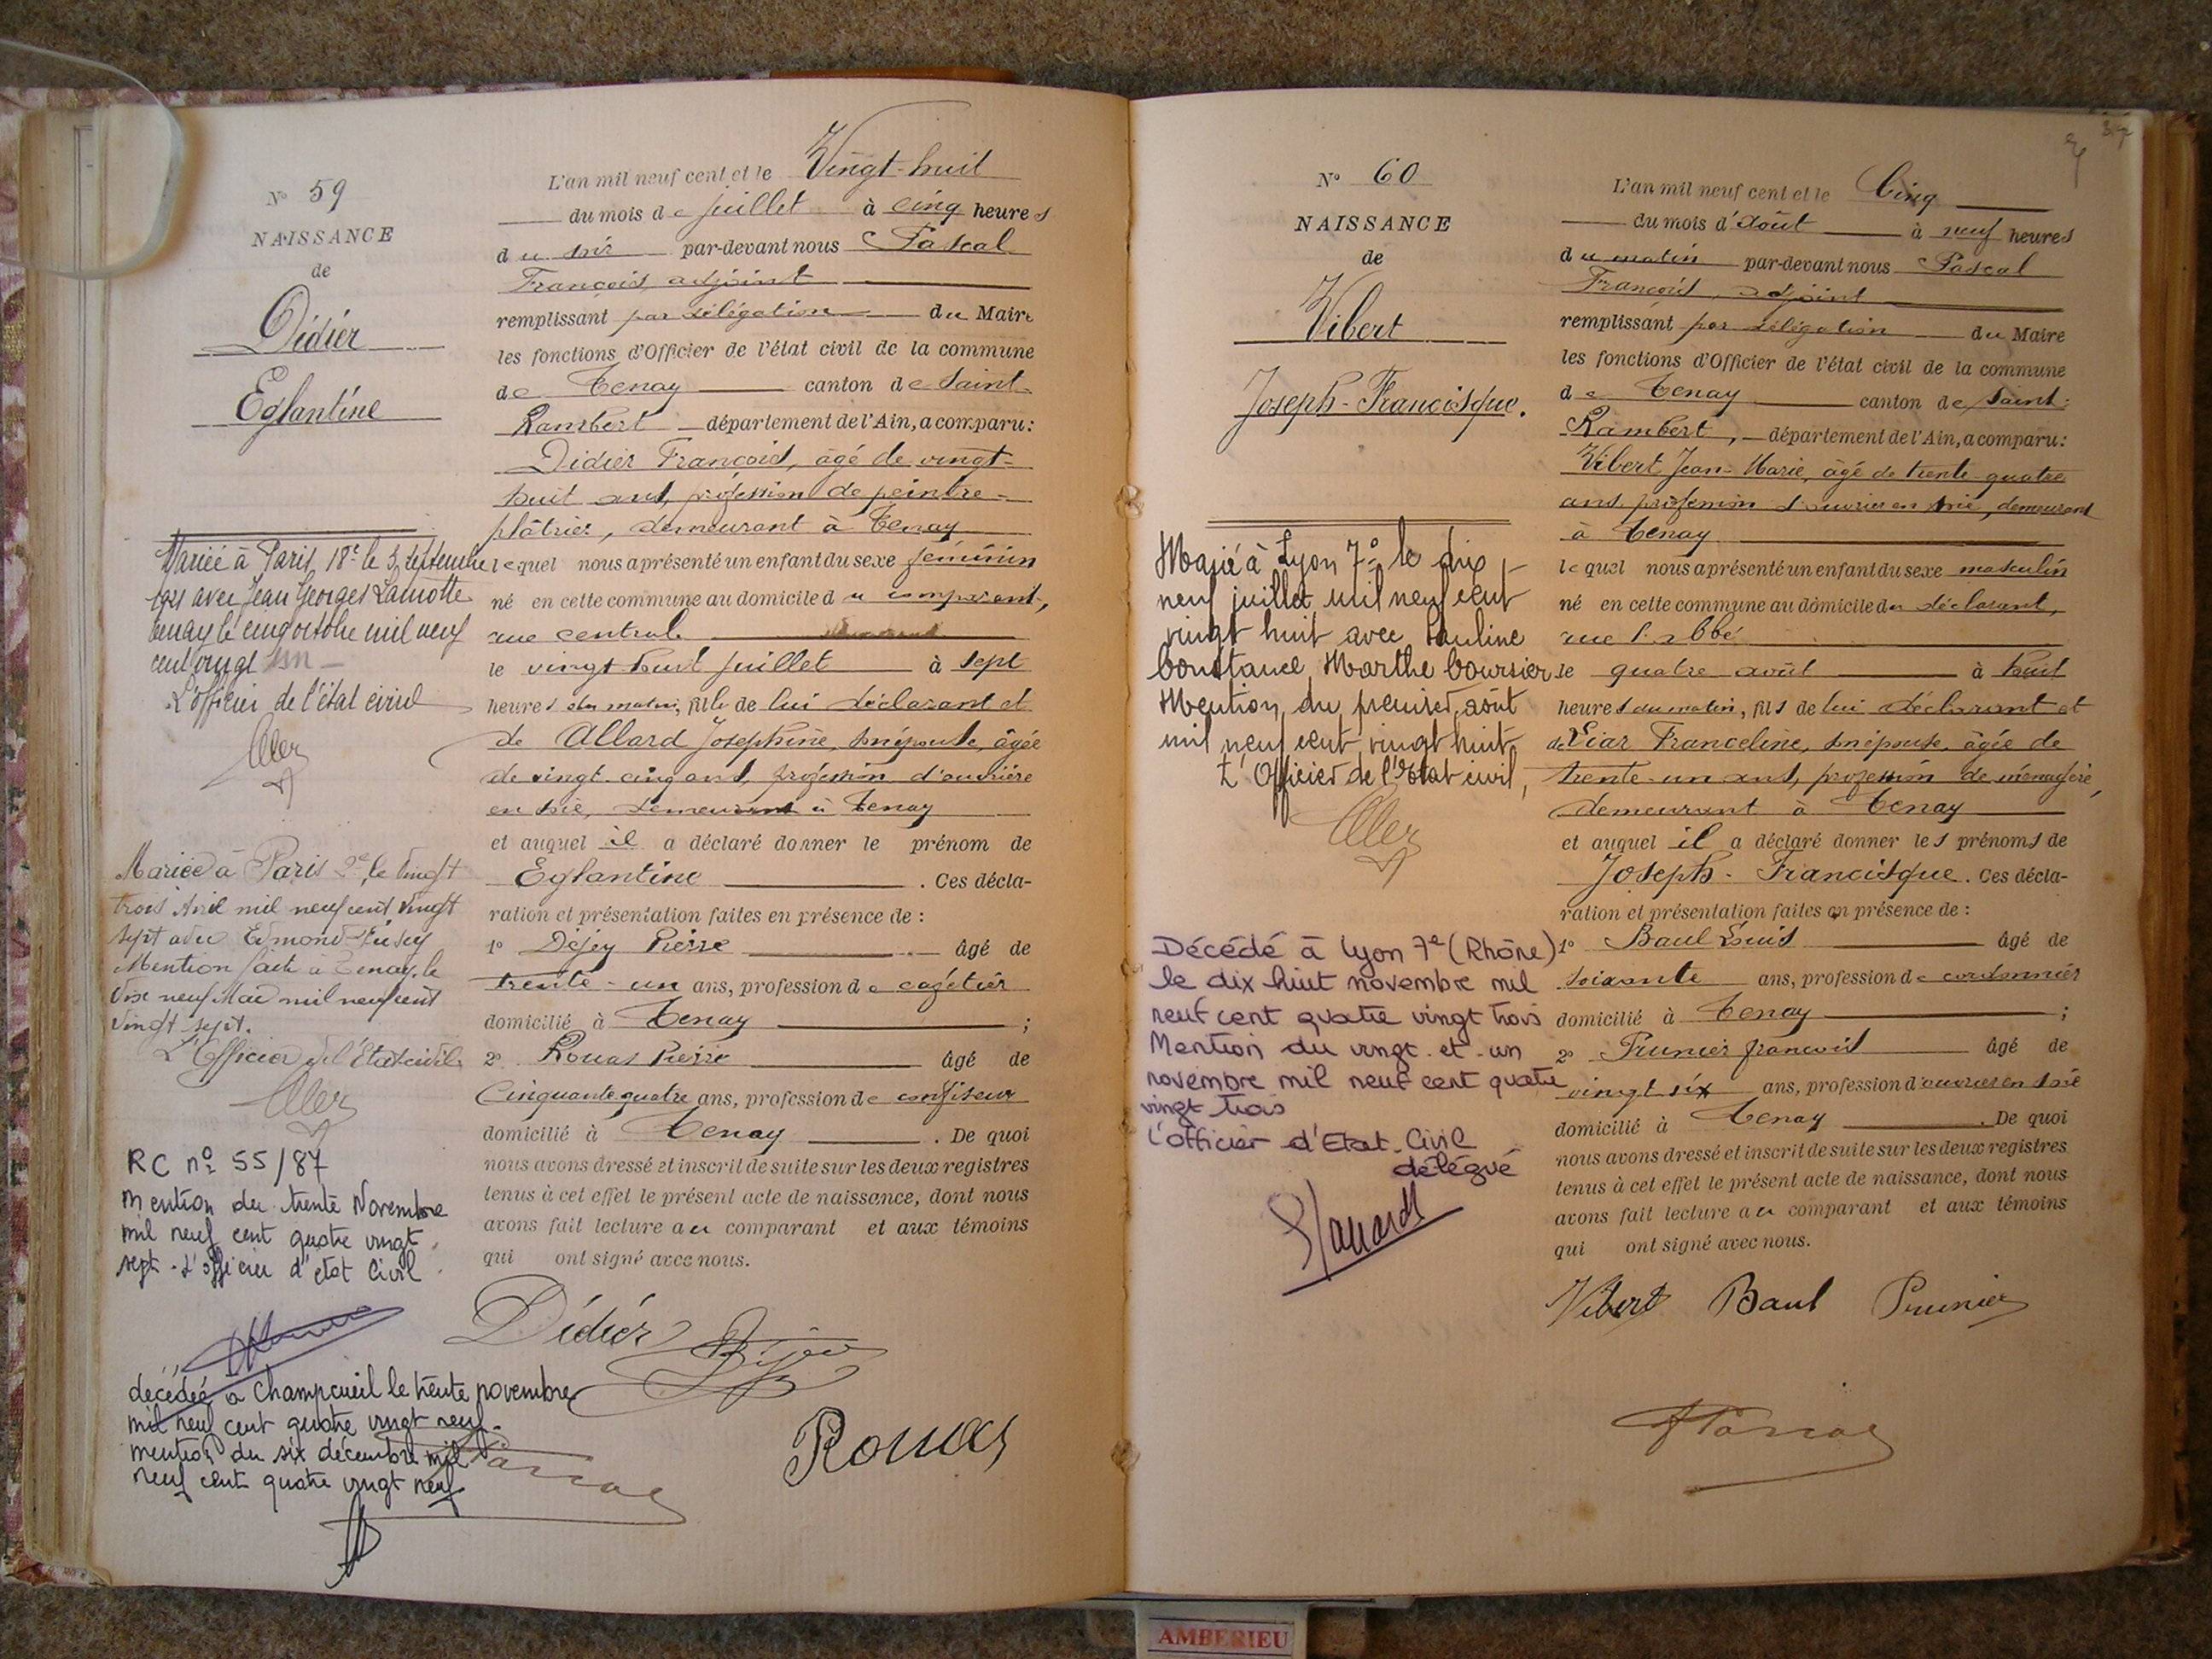 Nº 59
NAISSANCE
de
Didier
Eglantine
Mariée à Paris, 18e le 3 septembre
1921 avec Jean Georges Lamotte
Tenay le cinq octobre mil neuf
cent vingt un
L'officier de l'état civil
Mariée à Paris 2e, le vingt
trois Avril mil neuf cent vingt
sept avec Edmond
Mention faite à Tenay, le
dix neuf Mai mil neuf cent
vingt sept.
L'Officier de l'Etat civil
RC nº 55/87
mention du trente Novembre
mil neuf cent quatre vingt
sept - L'officier d'état Civil
décédée à Champcueil le trente novembre
mil neuf cent quatre vingt neuf.
mention du six décembre mil
neuf cent quatre vingt neuf
L'an mil neuf cent et le Vingt-huit
du mois de juillet à cinq heures
du soir par-devant nous Pascal
François, adjoint
remplissant par délégation du Maire
les fonctions d'Officier de l'état civil de la commune
de Tenay canton de Saint-
Rambert département de l'Ain, a comparu:
Didier François, âgé de vingt-
huit ans, profession de peintre-
plâtrier, demeurant à Tenay
lequel nous a présenté un enfant du sexe féminin
né en cette commune au domicile du comparant,
rue centrale
le vingt huit juillet à sept
heures du matin, fille de lui déclarant et
de Allard Joséphine, son épouse, âgée
de vingt-cinq ans, profession d'ouvrière
en soie, demeurant à Tenay
et auquel il a déclaré donner le prénom de
Eglantine. Ces décla-
ration et présentation faites en présence de :
1º Déjey Pierre âgé de
trente-un ans, profession de cafetier
domicilié à Tenay ;
2º Rouas Pierre âgé de
Cinquante quatre ans, profession de confiseur
domicilié à Tenay. De quoi
nous avons dressé et inscrit de suite sur les deux registres
tenus à cet effet le présent acte de naissance, dont nous
avons fait lecture au comparant et aux témoins
qui ont signé avec nous.
Didier
Rouas
Nº 60
NAISSANCE
de
Vibert
Joseph-Francisque.
Marié à Lyon 7e le dix
neuf juillet mil neuf cent
vingt huit avec Pauline
Constance Marthe Coursier
Mention du premier août
mil neuf cent vingt huit
L'Officier de l'état civil,
Décédé à Lyon 7e (Rhône)
le dix huit novembre mil
neuf cent quatre vingt trois
Mention du vingt-et-un
novembre mil neuf cent quatre
vingt trois
L'officier d'Etat-Civil
délégué
L'an mil neuf cent et le Cinq
du mois d'août à neuf heures
du matin par-devant nous Pascal
François, adjoint
remplissant par délégation du Maire
les fonctions d'Officier de l'état civil de la commune
de Tenay canton de Saint-
Rambert, département de l'Ain, a comparu:
Vibert Jean-Marie, âgé de trente-quatre
ans, profession d'ouvrier en soie, demeurant
à Tenay
lequel nous a présenté un enfant du sexe masculin
né en cette commune au domicile du déclarant,
rue l'abbé
le quatre août à huit
heures du matin, fils de lui déclarant et
de Liar Franceline, son épouse, âgée de
trente-un ans, profession de ménagère,
demeurant à Tenay
et auquel il a déclaré donner les prénoms de
Joseph-Francisque. Ces décla-
ration et présentation faites en présence de :
1º Baul Louis âgé de
soixante ans, profession de cordonnier
domicilié à Tenay ;
2º Prunier françois âgé de
vingt six ans, profession d'ouvrier en soie
domicilié à Tenay. De quoi
nous avons dressé et inscrit de suite sur les deux registres
tenus à cet effet le présent acte de naissance, dont nous
avons fait lecture au comparant et aux témoins
qui ont signé avec nous.
Vibert Baul Prunier
AMBERIEU